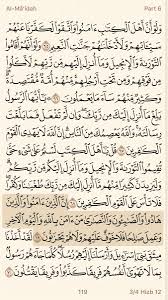 Al-Mâ'idah Part 6
وَلَوْ أَنَّ أَهْلَ ٱلْكِتَٰبِ ءَامَنُوا۟ وَٱتَّقَوْا۟ لَكَفَّرْنَا عَنْهُمْ
سَيِّـَٔاتِهِمْ وَلَأَدْخَلْنَٰهُمْ جَنَّٰتِ ٱلنَّعِيمِ ٦٥ وَلَوْ أَنَّهُمْ أَقَامُوا۟
ٱلتَّوْرَىٰةَ وَٱلْإِنجِيلَ وَمَآ أُنزِلَ إِلَيْهِم مِّن رَّبِّهِمْ لَأَكَلُوا۟
مِن فَوْقِهِمْ وَمِن تَحْتِ أَرْجُلِهِم ۚ مِّنْهُمْ أُمَّةٌ مُّقْتَصِدَةٌ ۖ وَكَثِيرٌ
مِّنْهُمْ سَآءَ مَا يَعْمَلُونَ ٦٦ ۞ يَٰٓأَيُّهَا ٱلرَّسُولُ بَلِّغْ مَآ أُنزِلَ
إِلَيْكَ مِن رَّبِّكَ ۖ وَإِن لَّمْ تَفْعَلْ فَمَا بَلَّغْتَ رِسَالَتَهُۥ ۚ وَٱللَّهُ
يَعْصِمُكَ مِنَ ٱلنَّاسِ ۗ إِنَّ ٱللَّهَ لَا يَهْدِى ٱلْقَوْمَ ٱلْكَٰفِرِينَ ٦٧
قُلْ يَٰٓأَهْلَ ٱلْكِتَٰبِ لَسْتُمْ عَلَىٰ شَىْءٍ حَتَّىٰ تُقِيمُوا۟ ٱلتَّوْرَىٰةَ
وَٱلْإِنجِيلَ وَمَآ أُنزِلَ إِلَيْكُم مِّن رَّبِّكُمْ ۗ وَلَيَزِيدَنَّ كَثِيرًا
مِّنْهُم مَّآ أُنزِلَ إِلَيْكَ مِن رَّبِّكَ طُغْيَٰنًا وَكُفْرًا ۖ فَلَا تَأْسَ
عَلَى ٱلْقَوْمِ ٱلْكَٰفِرِينَ ٦٨ إِنَّ ٱلَّذِينَ ءَامَنُوا۟ وَٱلَّذِينَ
هَادُوا۟ وَٱلصَّٰبِـُٔونَ وَٱلنَّصَٰرَىٰ مَنْ ءَامَنَ بِٱللَّهِ وَٱلْيَوْمِ ٱلْءَاخِرِ
وَعَمِلَ صَٰلِحًا فَلَا خَوْفٌ عَلَيْهِمْ وَلَا هُمْ يَحْزَنُونَ ٦٩ لَقَدْ أَخَذْنَا
مِيثَٰقَ بَنِىٓ إِسْرَٰٓءِيلَ وَأَرْسَلْنَآ إِلَيْهِمْ رُسُلًا ۖ كُلَّمَا جَآءَهُمْ
رَسُولٌۢ بِمَا لَا تَهْوَىٰٓ أَنفُسُهُمْ فَرِيقًا كَذَّبُوا۟ وَفَرِيقًا يَقْتُلُونَ ٧٠
119 3/4 Hizb 12